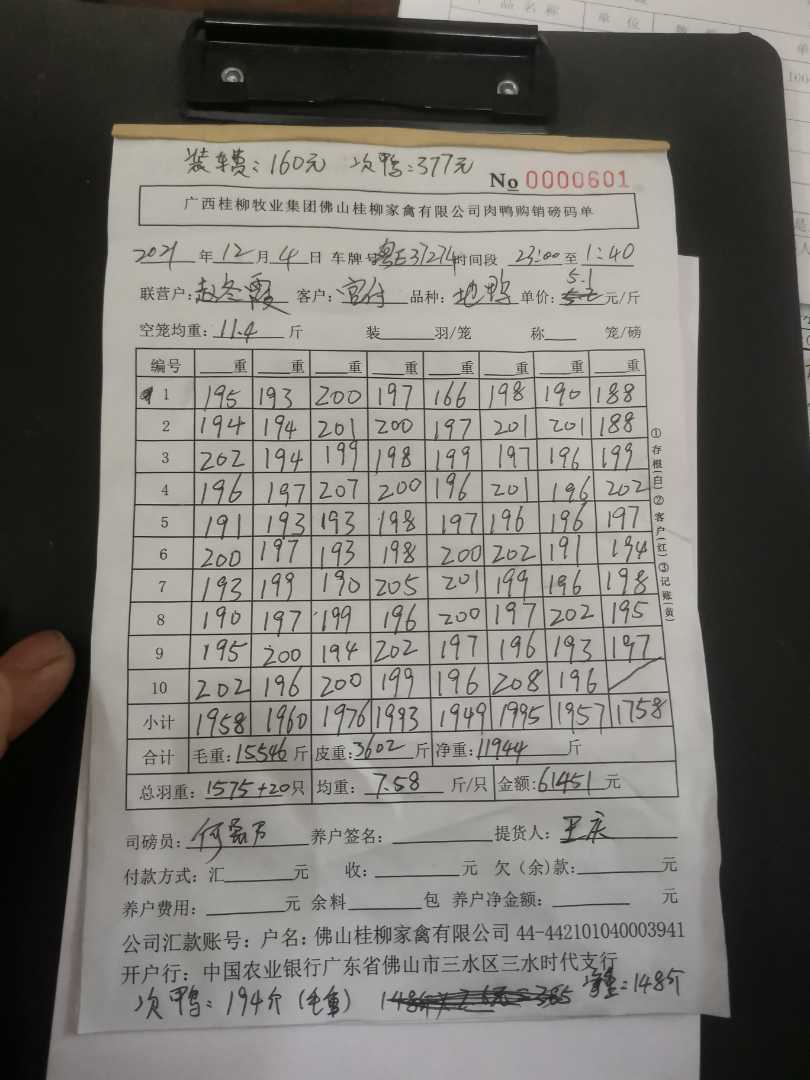 装车费:160元 次鸭:377元
No 0000601
广西桂柳牧业集团佛山桂柳家禽有限公司肉鸭购销磅码单
2021年12月4日 车牌号粤E37274 时间段 23:00至1:40
联营户:赵冬霞 客户: 品种:地鸭 单价:5.1元/斤
空笼均重:11.4斤 装 羽/笼 称 笼/磅
编号 重 重 重 重 重 重 重 重
1 195 193 200 197 166 198 190 188
2 194 194 201 200 197 201 201 188
3 202 194 199 198 199 197 196 199
4 196 197 207 200 196 201 196 202
5 191 193 193 198 197 196 196 197
6 200 197 193 198 200 202 191 194
7 193 199 190 205 201 199 196 198
8 190 197 199 196 200 197 202 195
9 195 200 194 202 197 196 193 197
10 202 196 200 199 196 208 196
小计 1958 1960 1976 1993 1949 1995 1957 1758
合计 毛重:15546斤 皮重:3602斤 净重:11944斤
总羽重:1575+20只 均重:7.58斤/只 金额:61451元
①存根(白)②客户(红)③记账(黄)
司磅员: 养户签名: 提货人:王庆
付款方式:汇 元 收: 元 欠(余)款: 元
养户费用: 元 余料 包 养户净金额: 元
公司汇款账号:户名:佛山桂柳家禽有限公司 44-442101040003941
开户行:中国农业银行广东省佛山市三水区三水时代支行
次鸭:194斤(毛重) 净重:148斤
品名称 单位